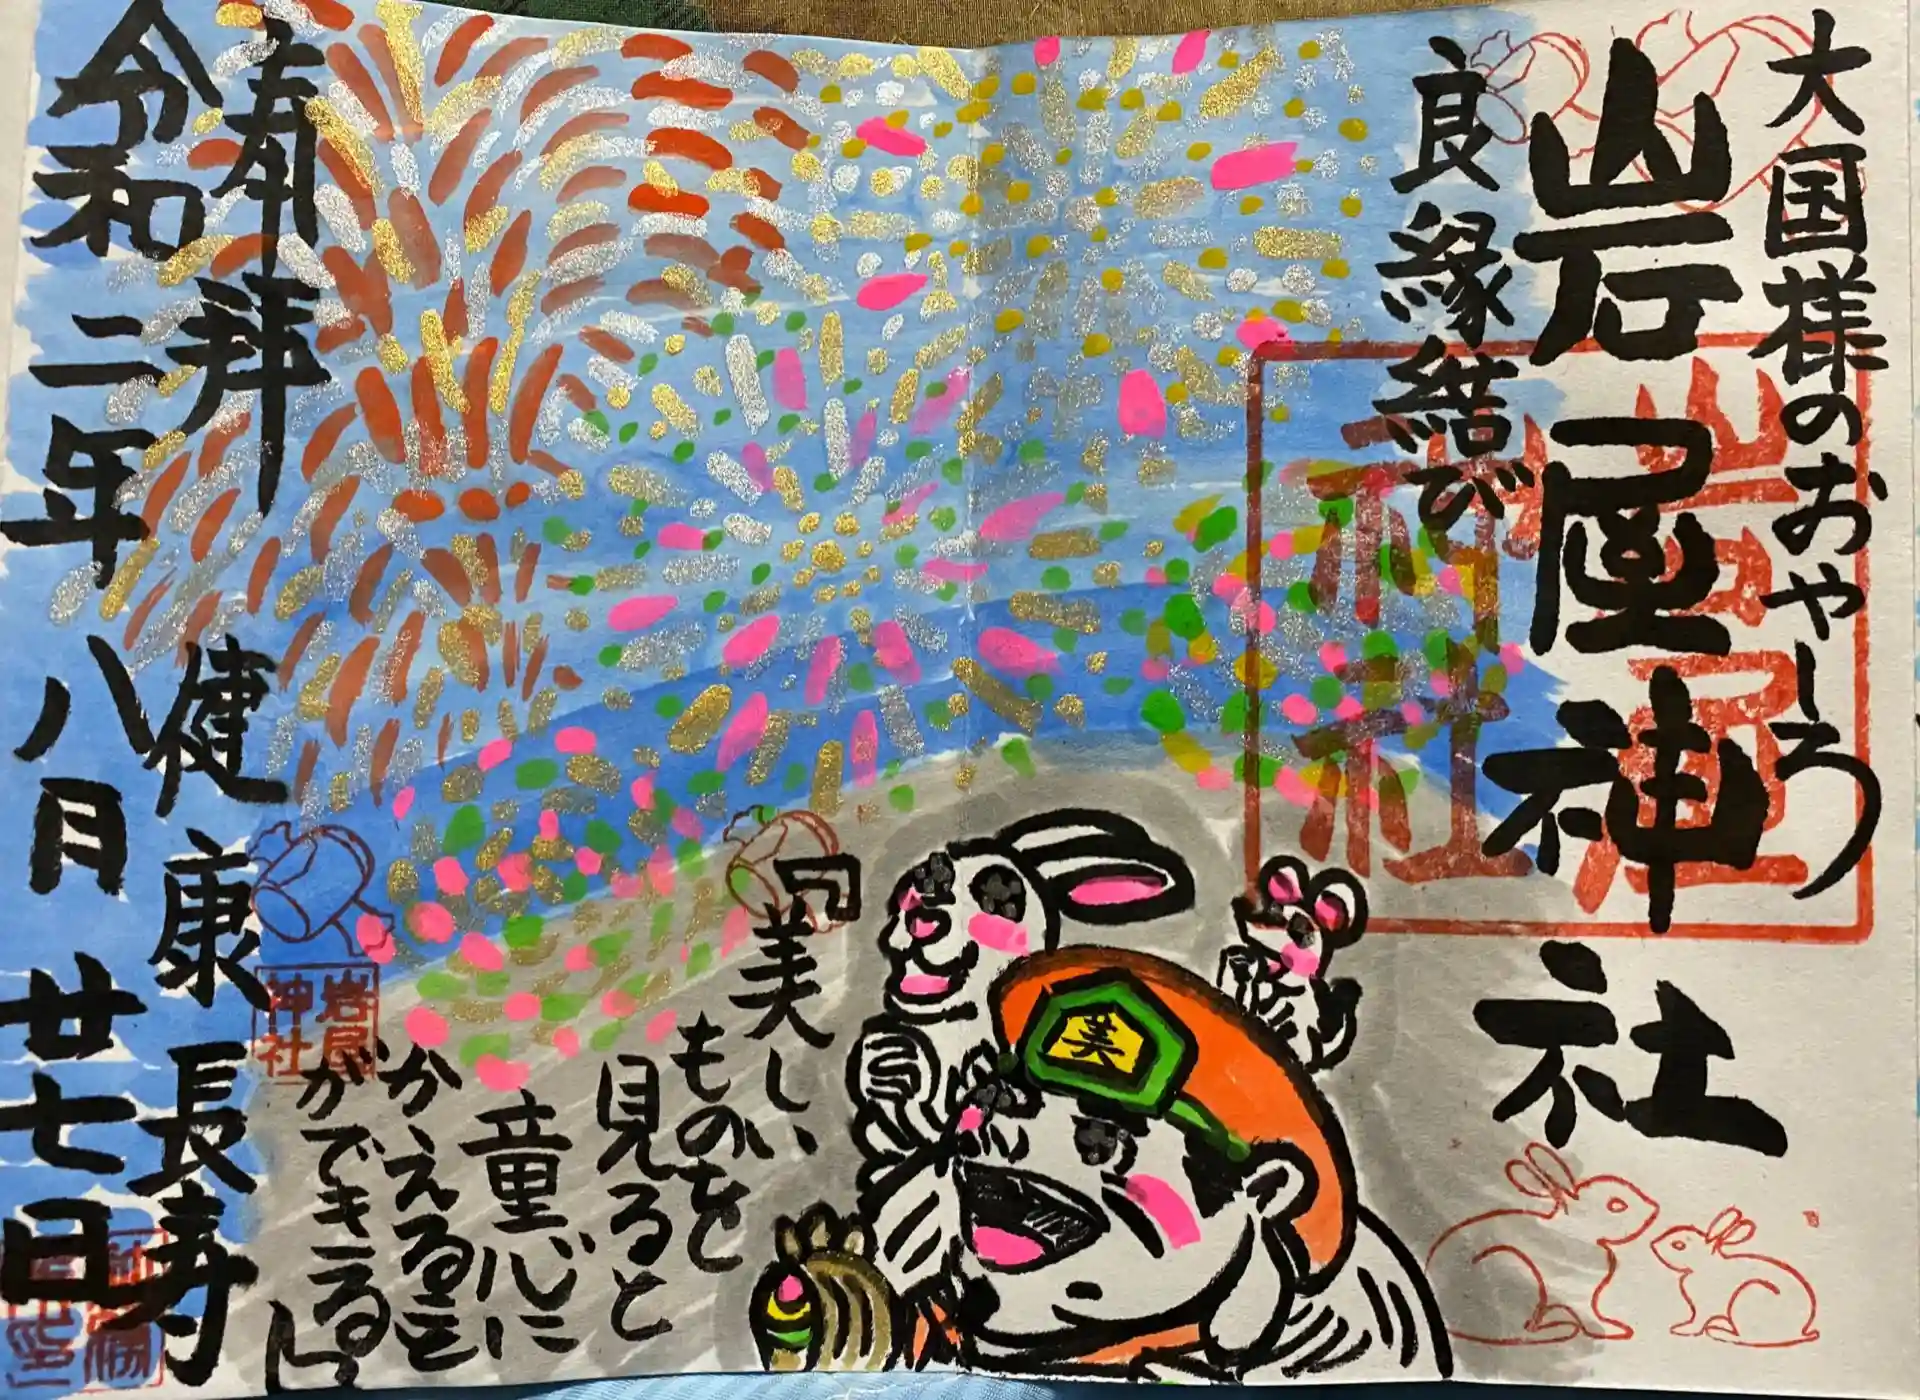 大国様のおやしろ
岩屋神社
良縁結び
岩屋
神社
美
「美しい
ものを
見ると
童心に
かえること
ができる」
岩屋
神社
奉拝
健康長寿
令和二年八月廿七日